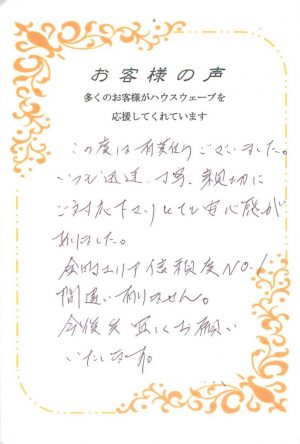 お客様の声
多くのお客様がハウスウェーブを
応援してくれています
この度は有難うございました。
いつも迅速、丁寧、親切に
ご対応下さりとても安心感が
有りました。
全的エリア信頼度NO.1
間違い有りません。
今後共宜しくお願い
いたします。